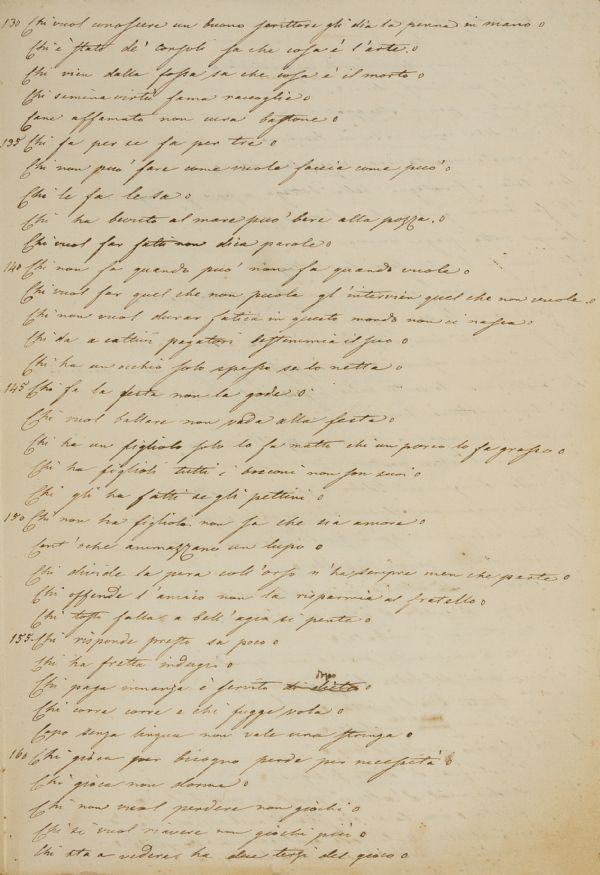 130 Chi vuol conoscere un buono scrittore gli dia la penna in mano
Chi è stato de' consoli sa che cosa è l'arte.
Chi vien dalla fossa sa che cosa è il morto
Chi semina virtù fama raccoglie
Cane affamato non cura bastone
135 Chi fa per se fa per tre
Chi non puo' fare come vuole faccia come puo'
Chi le fa le sa
Chi ha bevuto al mare puo' bere alla pozza.
Chi vuol far fatti non dica parole
140 Chi non fa quando puo' non fa quando vuole
Chi vuol far quel che non puole gl'intervien quel che non vuole
Chi non vuol durar fatica in questo mondo non ci nasca
Chi da a cattivi pagatori bestemmia il suo
Chi ha un occhio solo spesso se lo netta
145 Chi fa la festa non la gode
Chi vuol ballare non vada alla festa
Chi ha un figliolo solo lo fa matto chi un porco lo fa grasso
Chi ha figlioli tutti i bocconi non son suoi
Chi gli ha fatti se gli pettini
150 Chi non ha figlioli non sa che sia amore
Cent' ammazzano un lupo
Chi divide la pera coll'orso n'ha sempre men che parte
Chi offende l'amico non la risparmia al fratello
Chi tosto falla, a bell'agio si pente
155 Chi risponde presto sa poco
Chi ha fretta indugi
Chi paga innanzi è servito dopo
Chi corre corre e chi fugge vola
Capo senza lingua non vale una stringa
160 Chi gioca per bisogno perde per necessità
Chi gioca non dorme
Chi non vuol perdere non giochi
Chi si vuol riavere non giochi più
Chi sta a vedere, ha due terzi del gioco